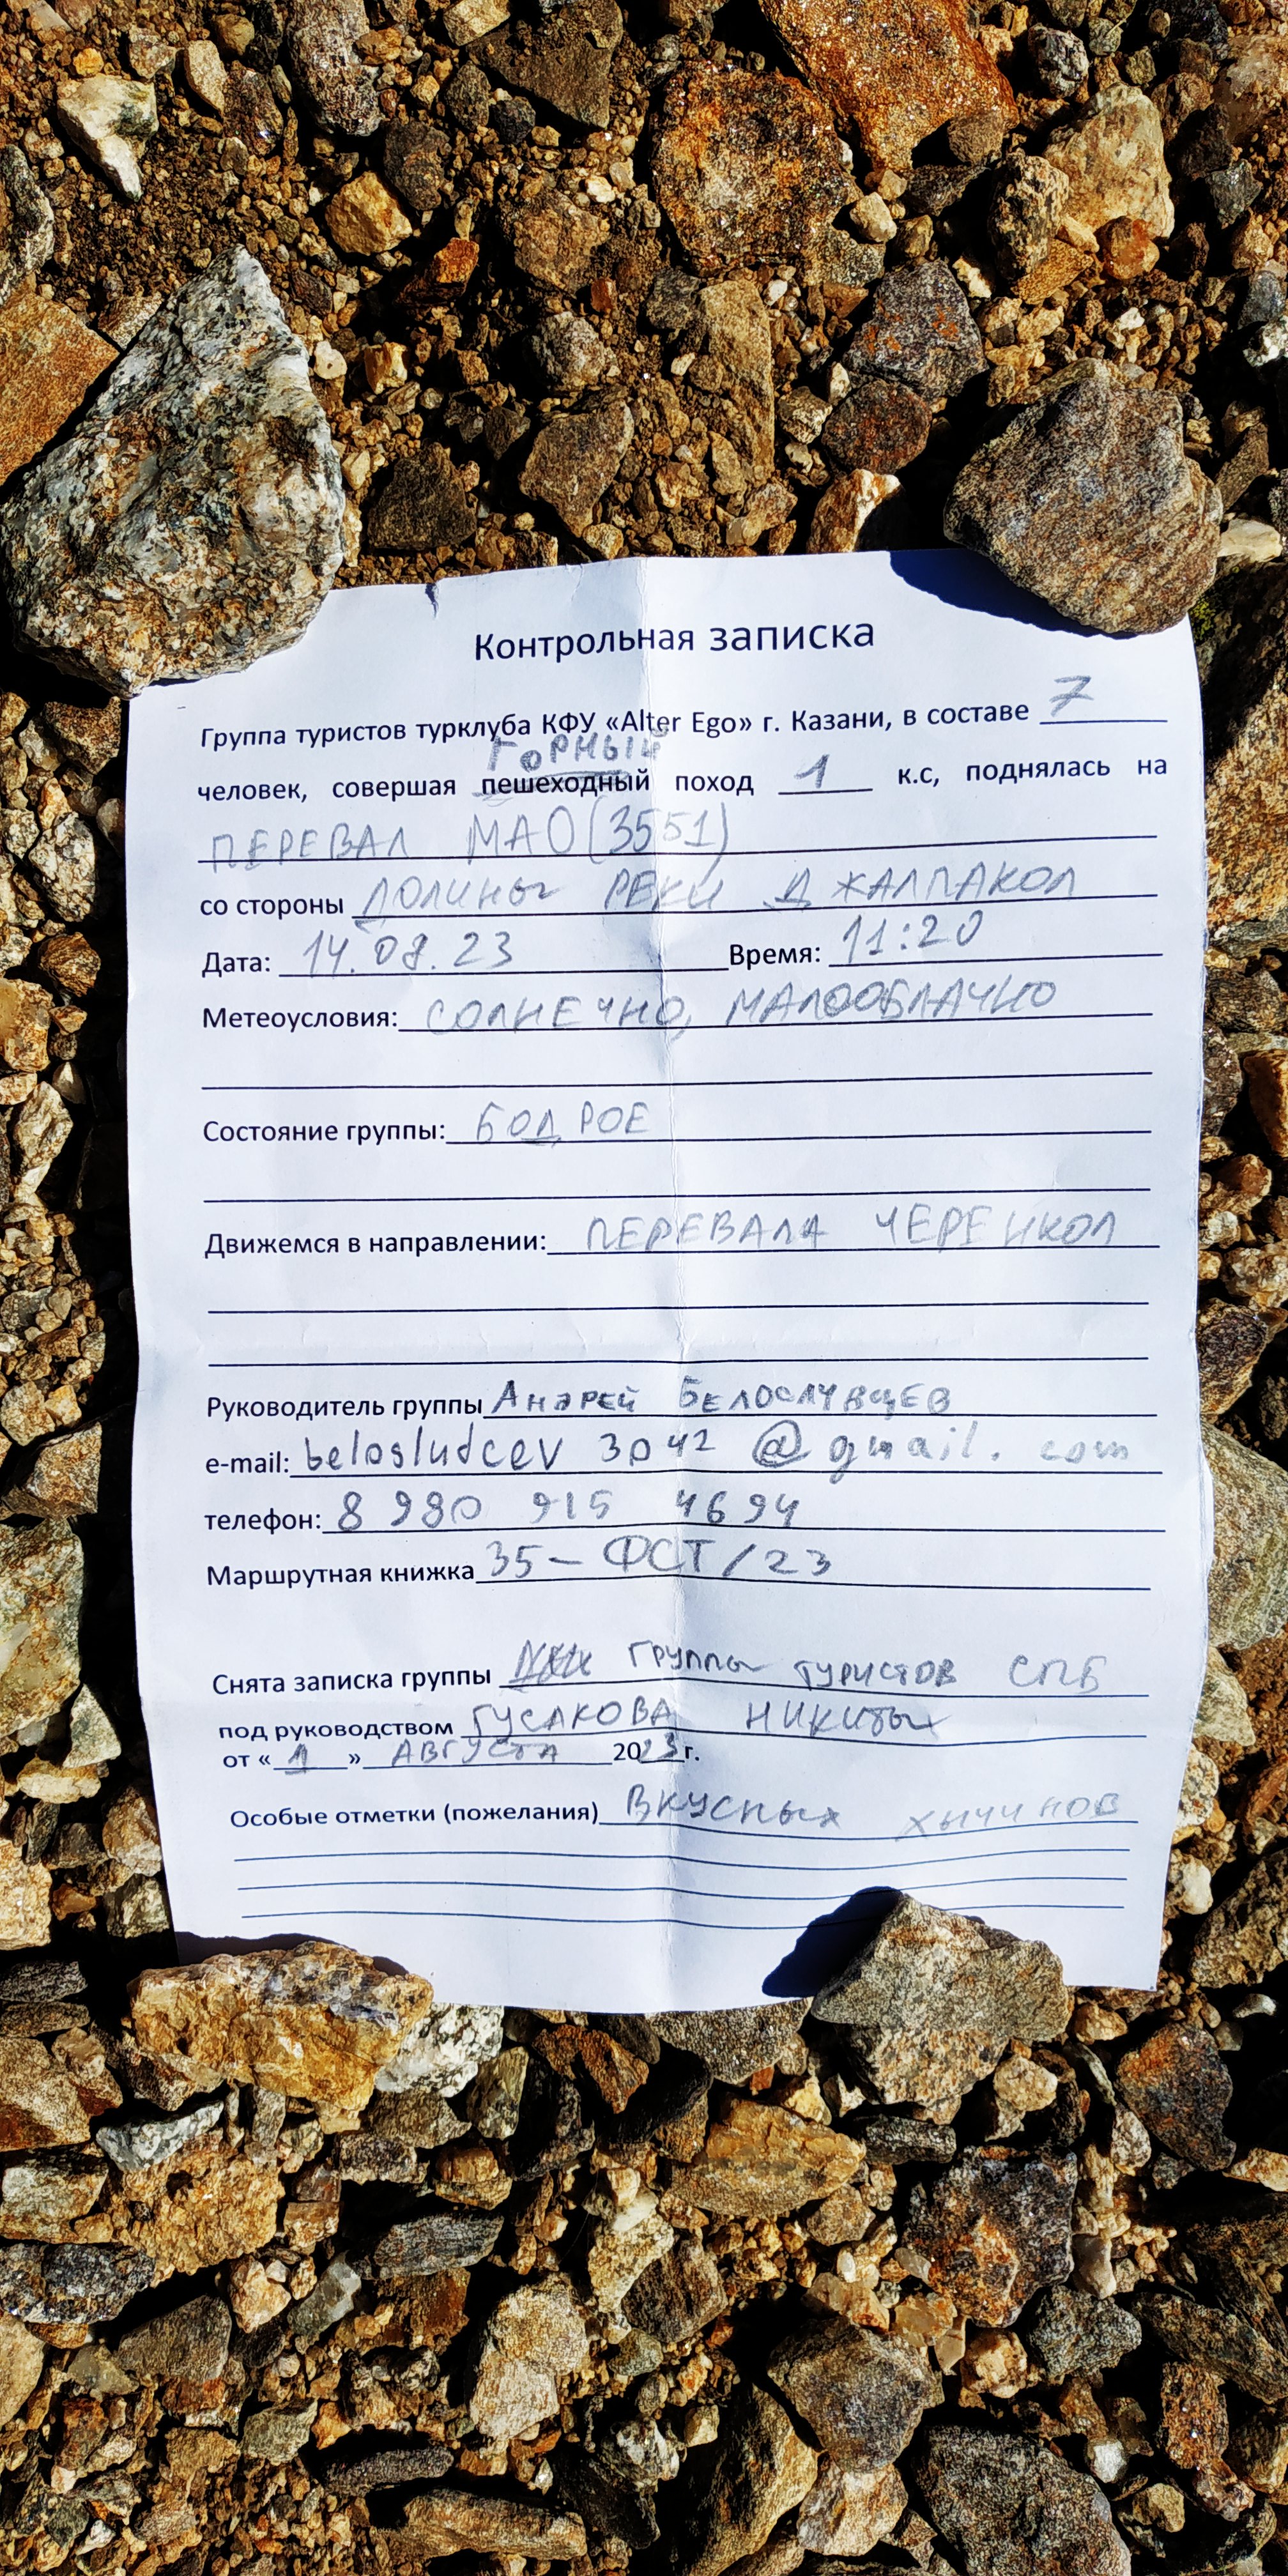 Контрольная записка
Группа туристов турклуба КФУ «Alter Ego» г. Казани, в составе 7
ГОРНЫЙ
человек, совершая пешеходный поход 1 к.с, поднялась на
ПЕРЕВАЛ МАО (3551)
со стороны ДОЛИНЫ РЕКИ ДЖАЛПАКОЛ
Дата: 14.08.23 Время: 11:20
Метеоусловия: СОЛНЕЧНО, МАЛООБЛАЧНО
Состояние группы: БОДРОЕ
Движемся в направлении: ПЕРЕВАЛА ЧЕРЕНКОЛ
Руководитель группы Андрей Белослудцев
e-mail: belosludcev 3042 @gmail.com
телефон: 8 980 915 4694
Маршрутная книжка 35-ФСТ/23
Снята записка группы Группы туристов СПБ
под руководством ГУСАКОВА НИКИТЫ
от «1» АВГУСТА 2023г.
Особые отметки (пожелания) Вкусных хычинов